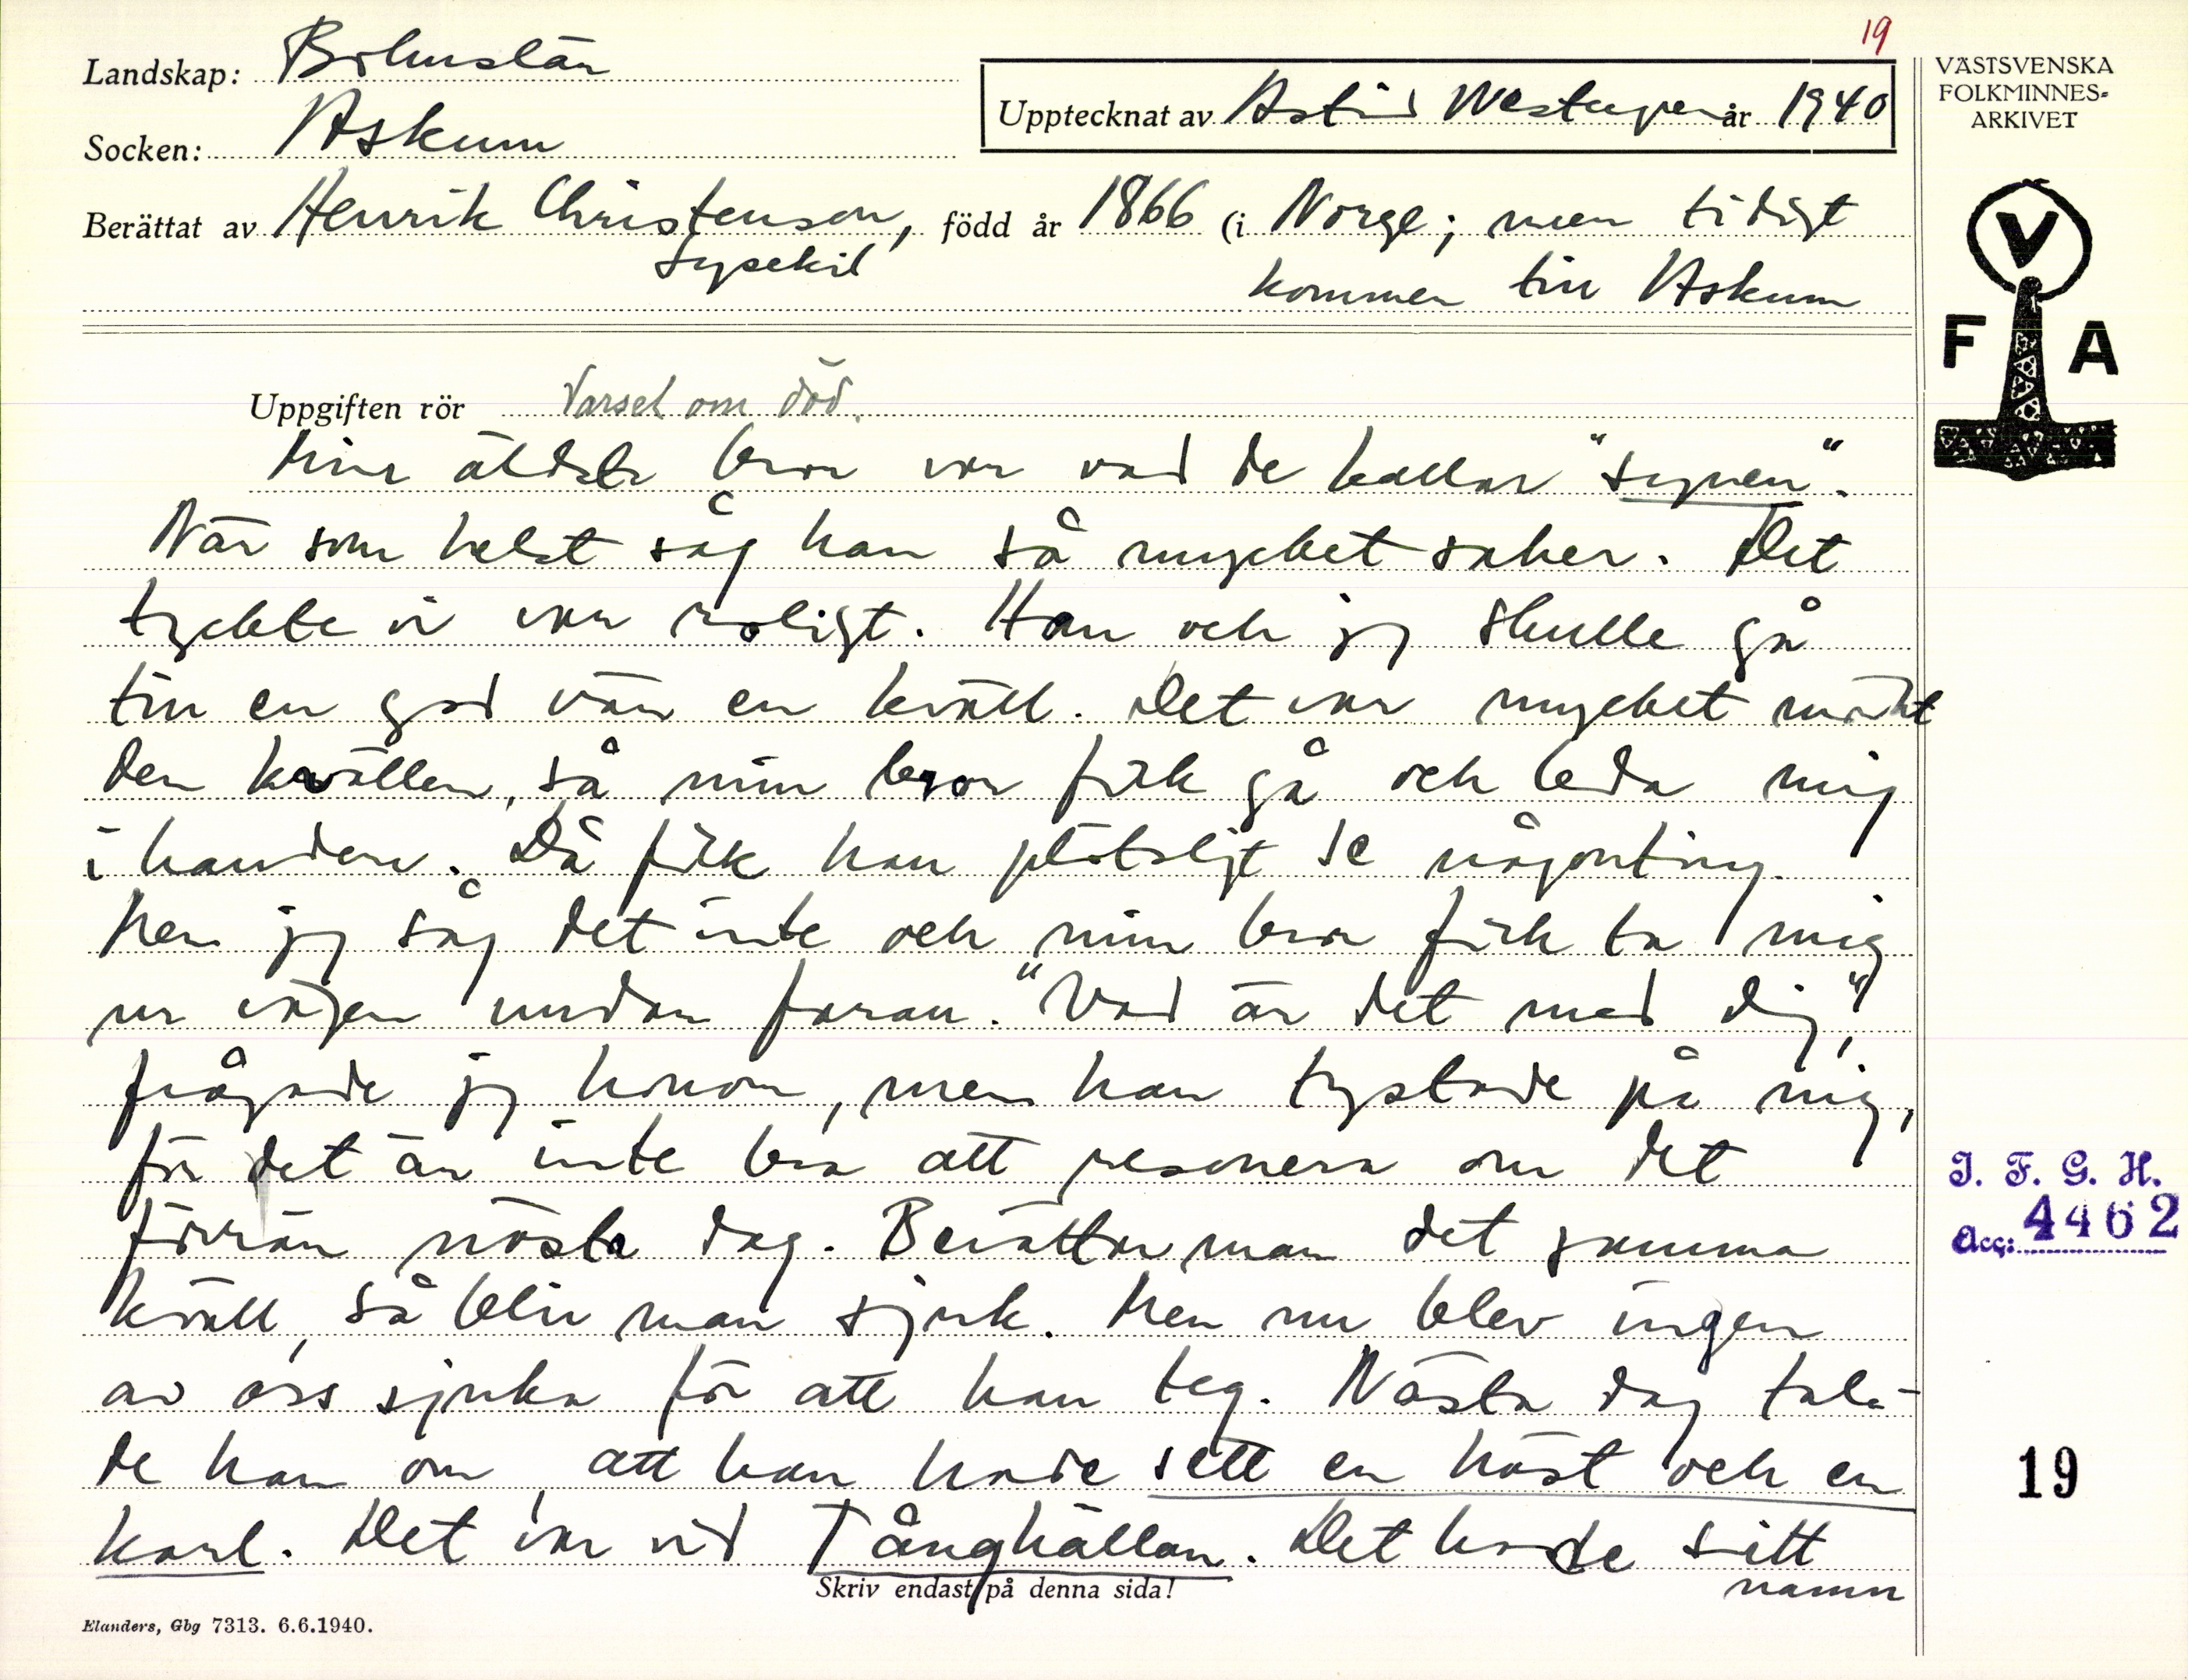 19
Landskap: Bohuslän
VÄSTSVENSKA
FOLKMINNES-
ARKIVET
Upptecknat av Astrid år 1940
Socken: Askum
Berättat av Henrik Christenson, född år 1866 (i Norge; men tidigt
Lysekil
kommen till Askum
V
F A
Uppgiften rör Varsel om död.
Min äldste bror var vad de kallar "synen".
När som helst såg han så mycket saker. Det
tyckte vi var roligt. Han och jag skulle gå
till en god vän en kväll. Det var mycket mörkt
den kvällen, så min bror fick gå och leda mig
i handen. Då fick han plötsligt se någonting.
Men jag såg det inte och min bror fick ta mig
ur vägen undan faran. "Vad är det med dig",
frågade jag honom, men han tystade på mig,
för det är inte bra att resonera om det
förrän nästa dag. Berättar man det samma
kväll, så blir man sjuk. Men nu blev ingen
av oss sjuka för att han teg. Nästa dag tala-
de han om, att han hade sett en häst och en
karl. Det var vid Tånghällan. Det hade sitt
namn
I. F. G. H.
Acc: 4462
19
Skriv endast på denna sida!
Elanders, Gbg 7313. 6.6.1940.